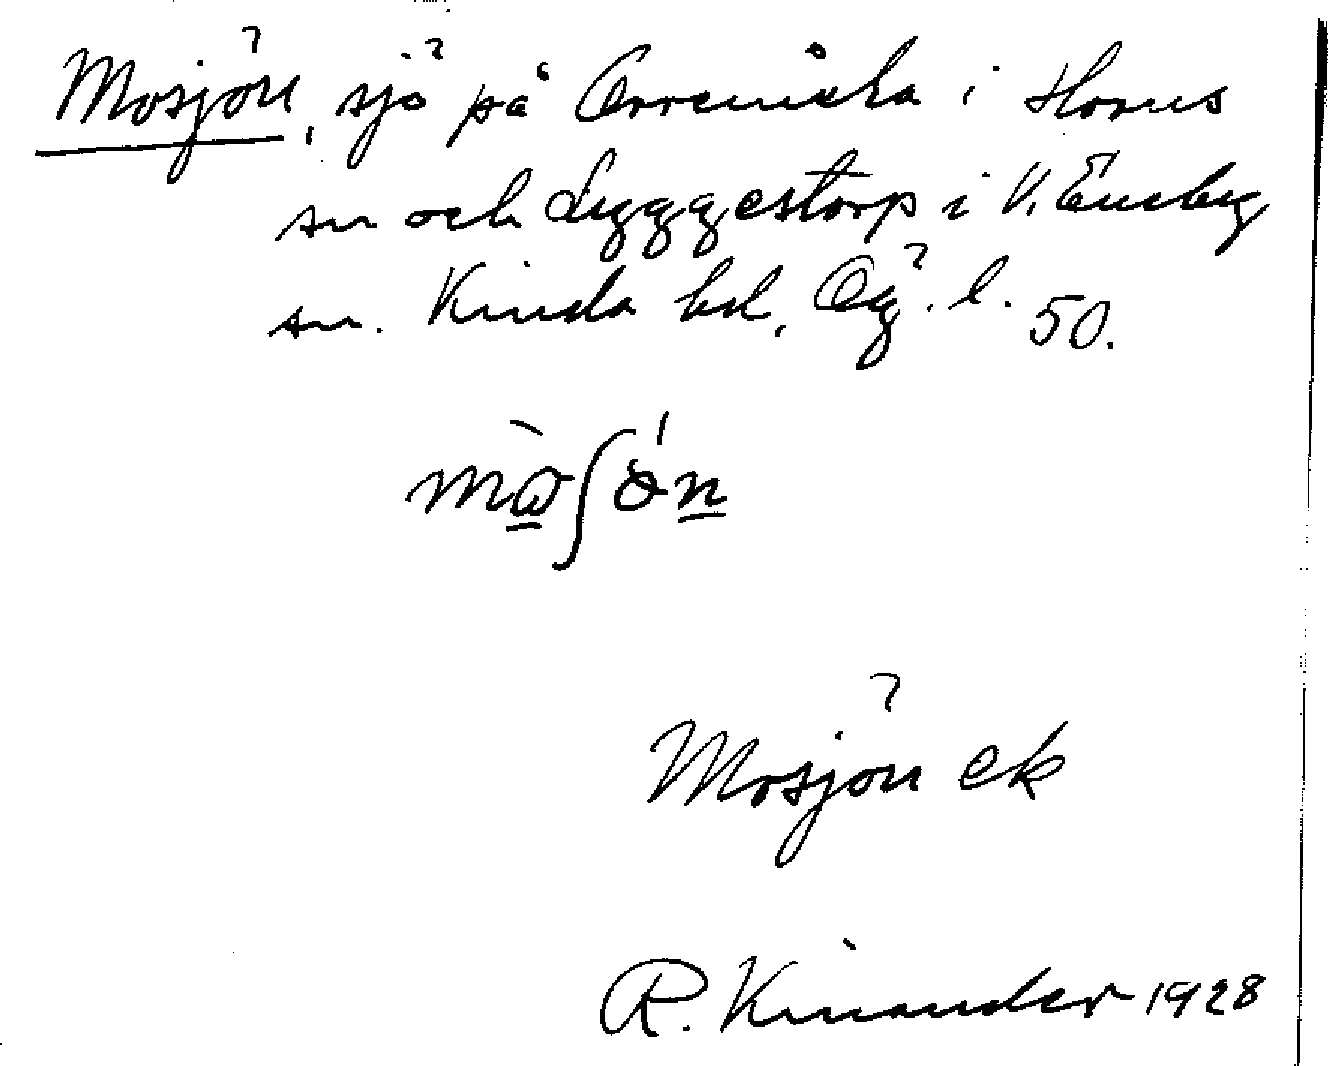 Mosjön, sjö på Orremåla i Horns
sn och Lyggestorp i V. Eneby
sn. Kinda hd, Ög. l. 50.
Mosjön ek
R. Kinander 1928